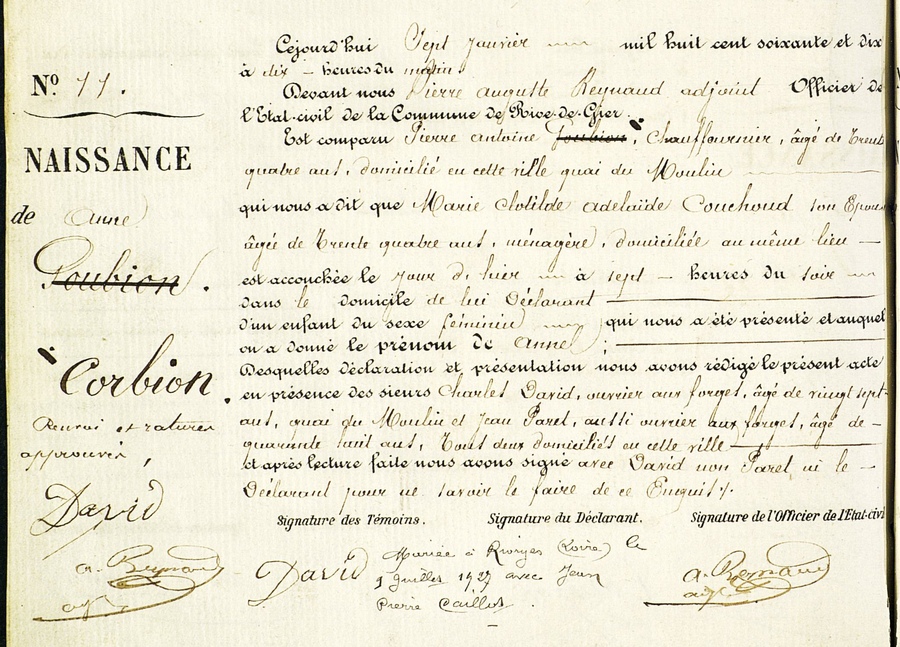 Nº 11.
NAISSANCE
de Anne
Poubion.
Corbion.
Renvoi et ratures
approuvés,
David
A. Reynaud
adj
Cejourd'hui Sept Janvier mil huit cent soixante et dix
à dix heures du matin
Devant nous Pierre Auguste Reynaud adjoint Officier de
l'Etat-civil de la Commune de Rive-de-Gier.
Est comparu Pierre Antoine Poubion, Chauffournier, âgé de trente
quatre ans, domicilié en cette ville quai du Moulin
qui nous a dit que Marie Clotilde Adelaïde Couchoud son Epouse
âgée de trente quatre ans, ménagère, domiciliée au même lieu
est accouchée le jour d'hier à sept heures du soir
dans le domicile de lui Déclarant
d'un enfant du sexe féminin qui nous a été présenté et auquel
on a donné le prénom de Anne ;
Desquelles déclaration et présentation nous avons rédigé le présent acte
en présence des sieurs Charles David, ouvrier aux forges, âgé de vingt sept
ans, quai du Moulin et Jean Paret, aussi ouvrier aux forges, âgé de
quarante huit ans, tous deux domiciliés en cette ville
et après lecture faite nous avons signé avec David non Paret ni le
Déclarant pour ne savoir le faire de ce Enquis.
Signature des Témoins. Signature du Déclarant. Signature de l'Officier de l'Etat-civil
David
Mariée à Riorges (Loire) le
1 Juillet 1927 avec Jean
Pierre Caillot.
A. Reynaud
adj